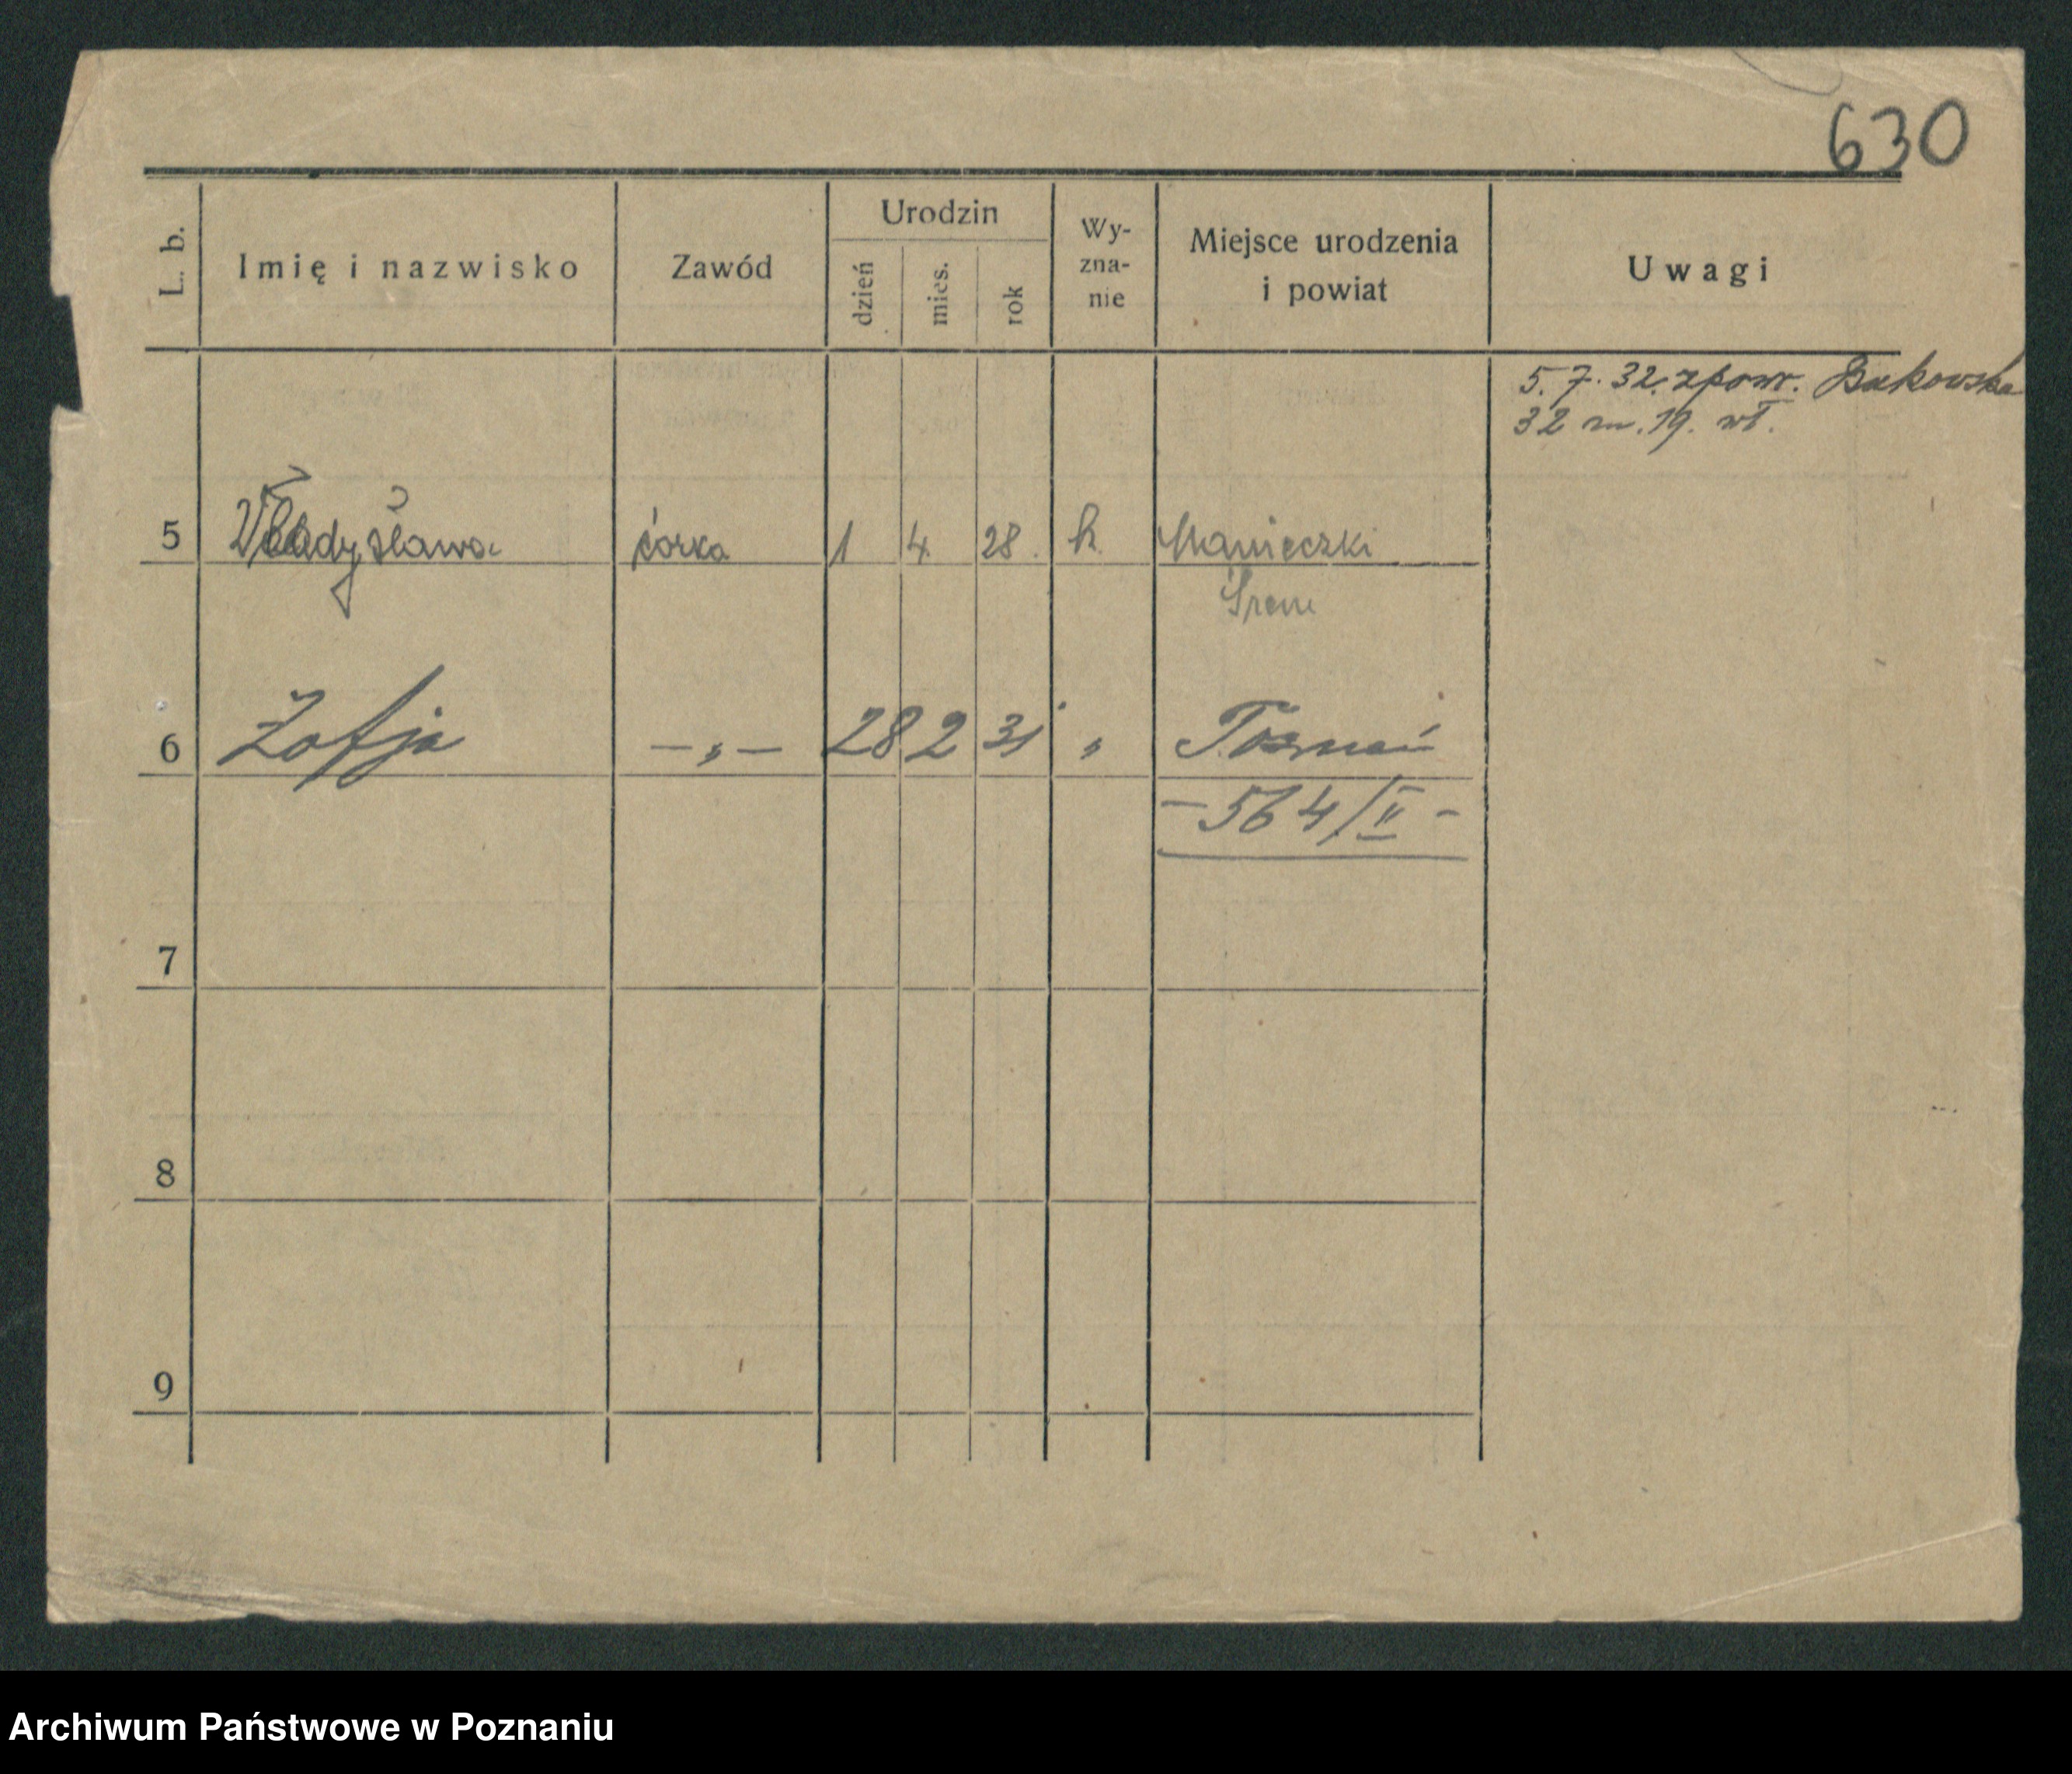 630
L. b.
Imię i nazwisko
Zawód
Urodzin
dzień
mies.
rok
Wy-
zna-
nie
Miejsce urodzenia
i powiat
Uwagi
5. 7. 32. z powr. Bukowska
32 m. 19. wł.
5 Władysława córka 1 4 28. k. Manieczki
Śrem
6 Zofja — „ — 28 2 31 „ Poznań
- 564/II -
7
8
9
Archiwum Państwowe w Poznaniu